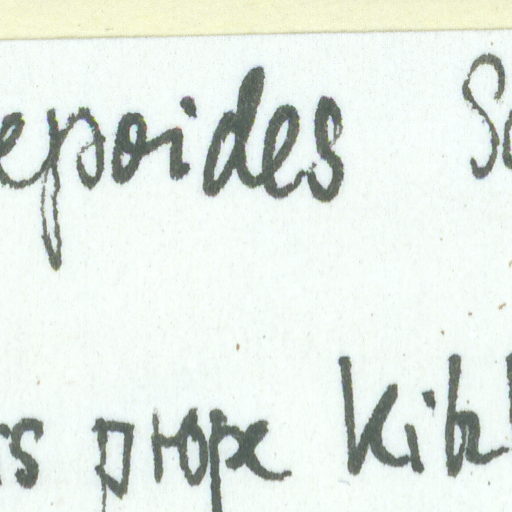 epoides S
is prope Kitz